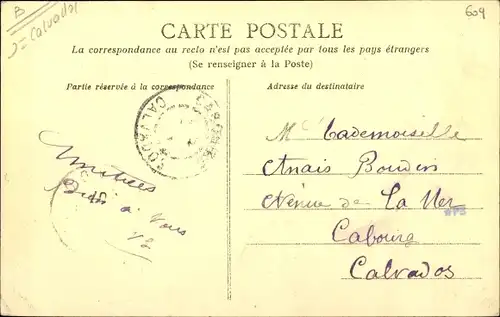 B
= Calvados
609
CARTE POSTALE
La correspondance au recto n'est pas acceptée par tous les pays étrangers
(Se renseigner à la Poste)
Partie réservée à la correspondance
Adresse du destinataire
CALVADOS
Mademoiselle
Anais Boudin
Avenue de La Mer
Cabourg
Calvados
Amitiés
Bien à Vous